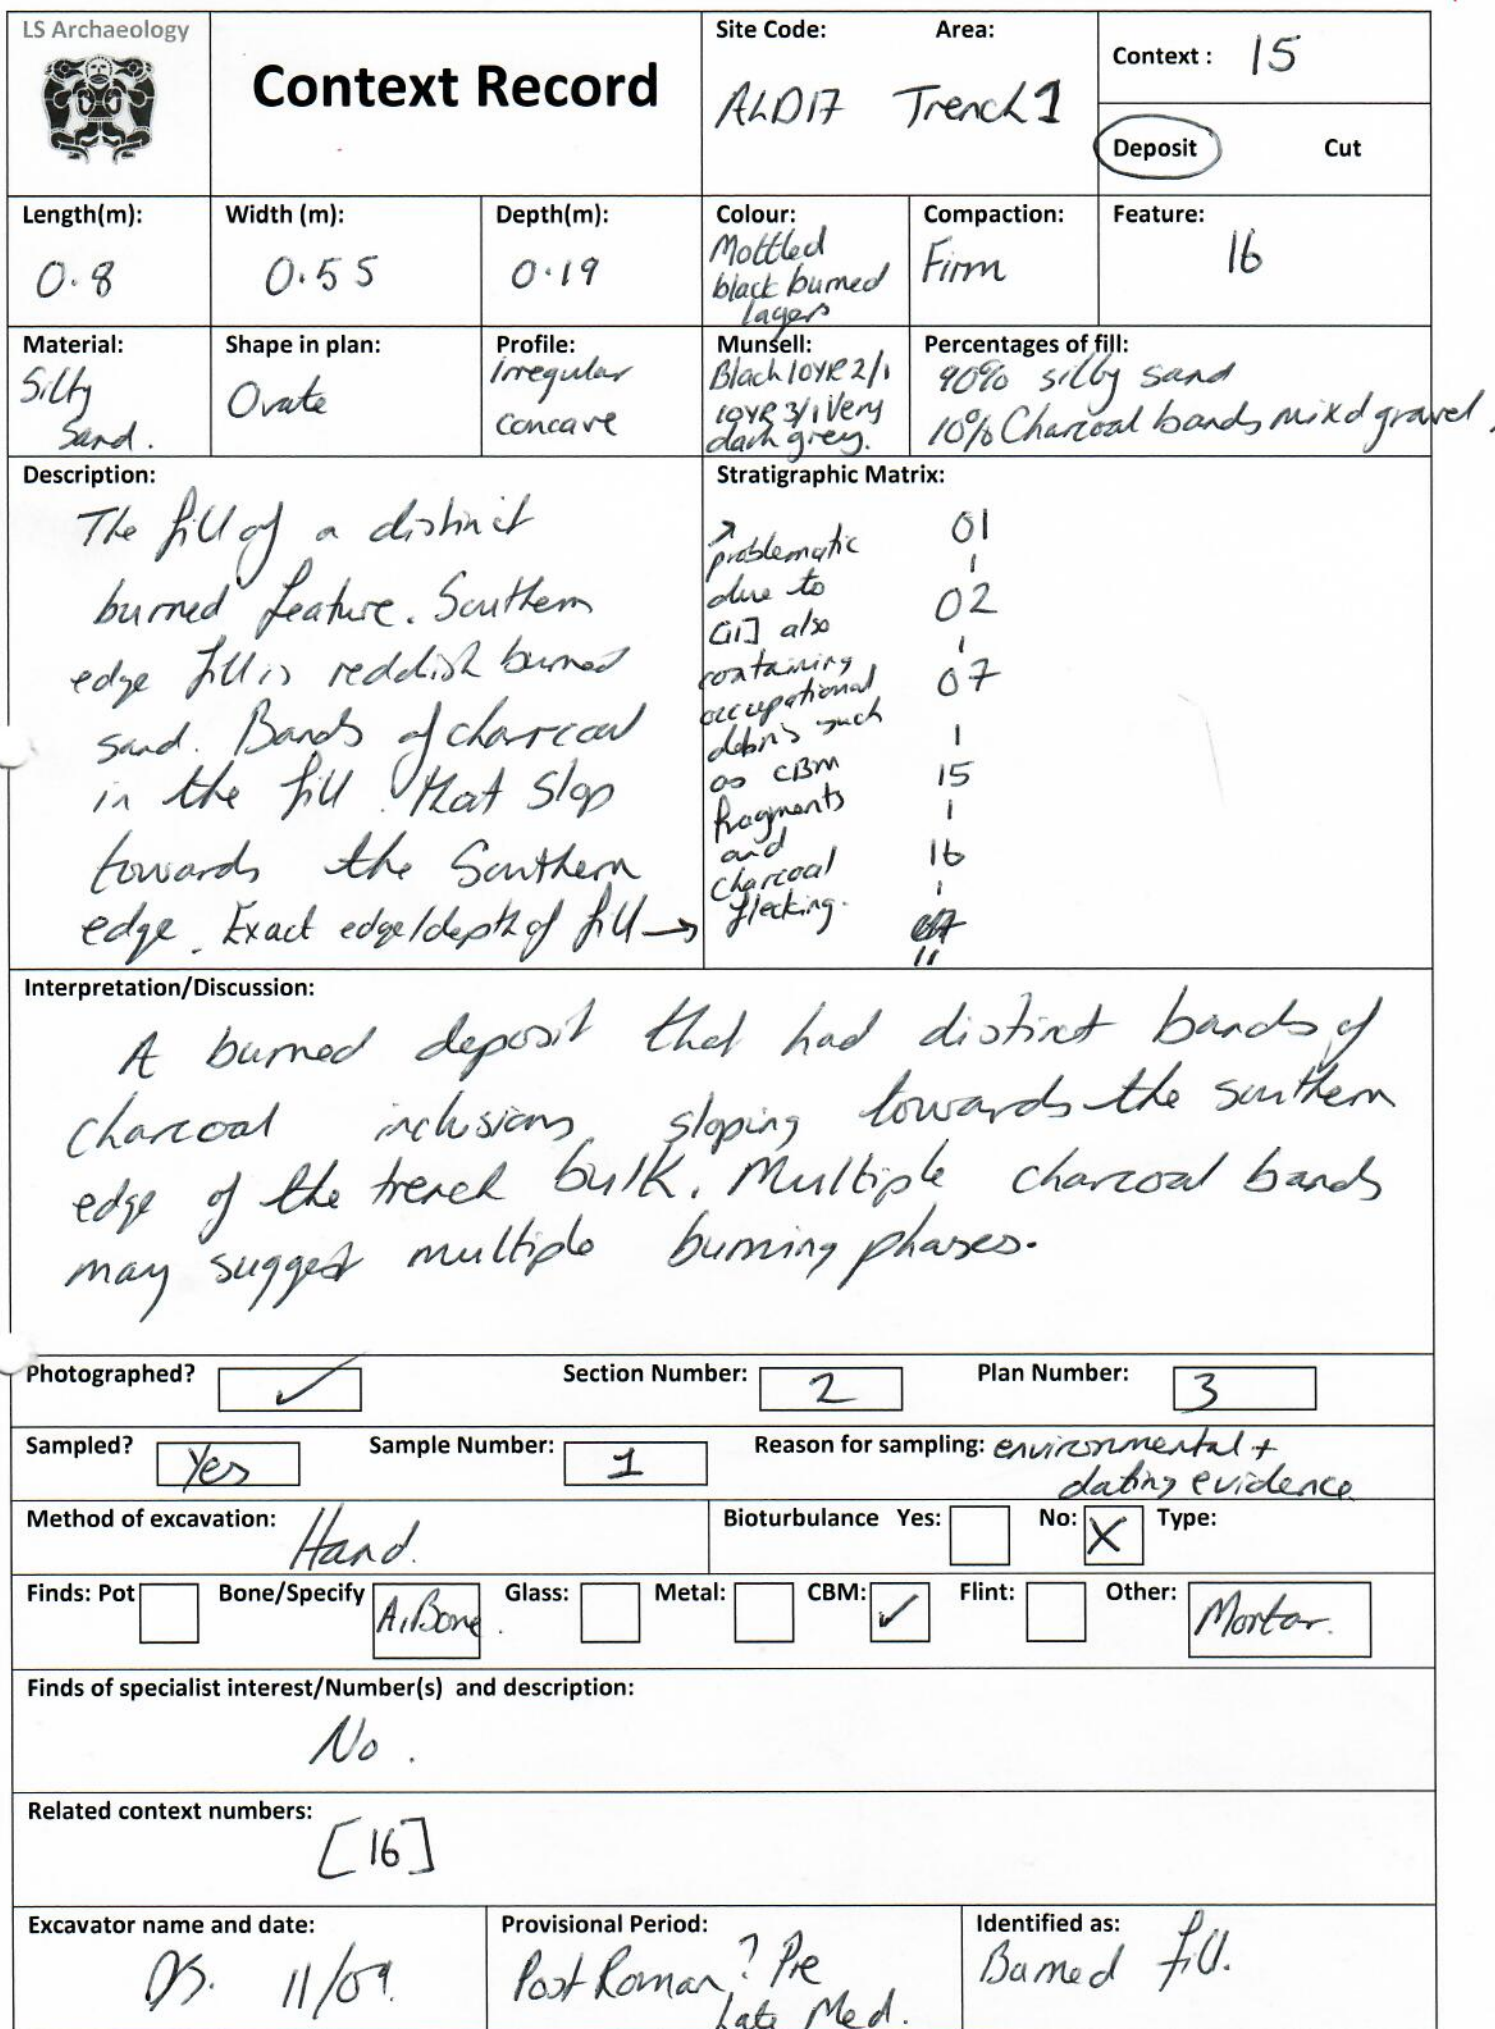 LS Archaeology
Context Record
Site Code: Area:
ALD17 Trench 1
Context : 15
Deposit Cut
Length(m):
0.8
Width (m):
0.55
Depth(m):
0.19
Colour:
Mottled
black burned
layers
Compaction:
Firm
Feature:
16
Material:
Silty
Sand.
Shape in plan:
Ovate
Profile:
Irregular
concave
Munsell:
Black 10YR 2/1
10YR 3/1 Very
dark grey.
Percentages of fill:
90% silty sand
10% Charcoal bands mixd gravel.
Description:
The fill of a distinct
burned feature. Southern
edge fill is reddish burned
sand. Bands of charcoal
in the fill that slop
towards the Southern
edge. Exact edge/depth of fill →
Stratigraphic Matrix:
↗
problematic
due to
[11] also
containing
occupational
debris such
as CBM
fragments
and
charcoal
flecking.
01
02
07
15
16
11
Interpretation/Discussion:
A burned deposit that had distinct bands of
charcoal inclusions sloping towards the southern
edge of the trench bulk. Multiple charcoal bands
may suggest multiple burning phases.
Photographed? ✓ Section Number: 2 Plan Number: 3
Sampled? Yes Sample Number: 1 Reason for sampling: environmental +
dating evidence
Method of excavation: Hand.
Bioturbulance Yes: No: X Type:
Finds: Pot Bone/Specify A.Bone. Glass: Metal: CBM: ✓ Flint: Other: Mortar.
Finds of specialist interest/Number(s) and description:
No.
Related context numbers:
[16]
Excavator name and date:
11/09.
Provisional Period:
Post Roman? Pre
Late Med.
Identified as:
Burned fill.